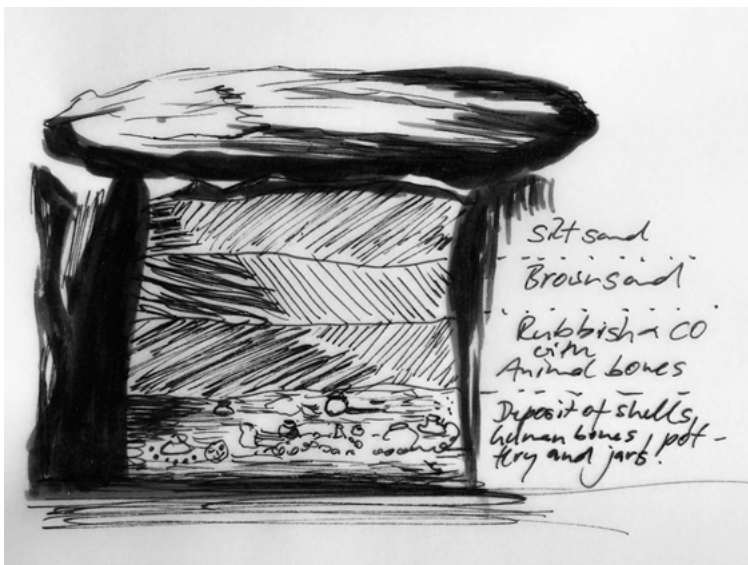 Silt sand
Brown sand
Rubbish & CO
with
Animal bones
Deposit of shells,
human bones, pot-
tery and jars.